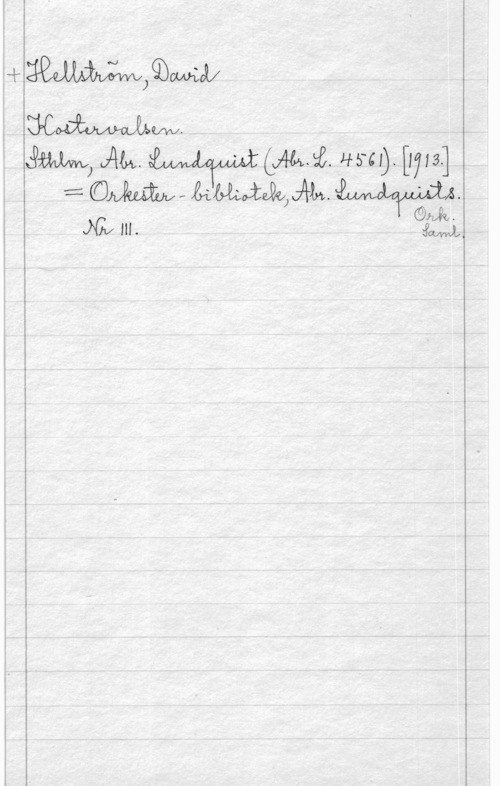 + Hellström, David
Kostervalsen.
Sthlm, Abr. Lundquist (Abr. L. 4561). [1913.]
= Orkester-bibliotek, Abr. Lundquists.
Nr 111.
Ork.
Saml.